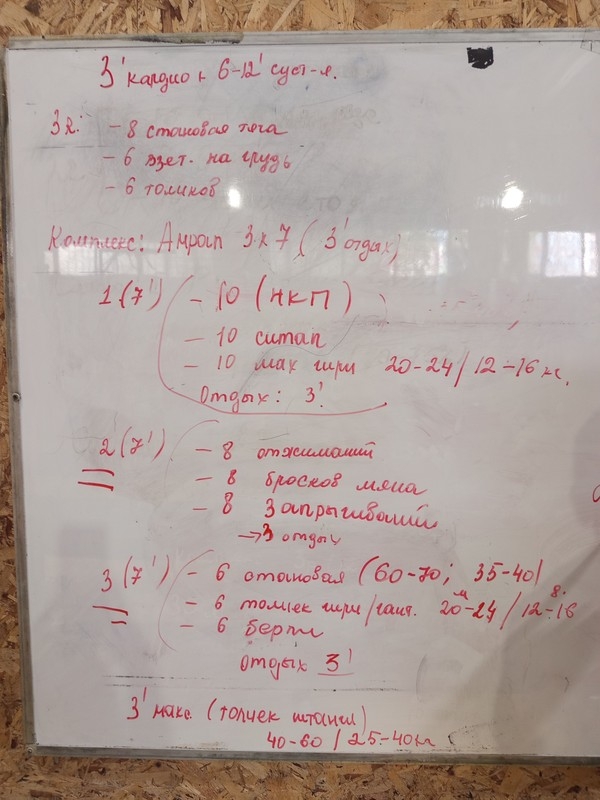 3' кардио + 6-12' суст-я.
3R: - 8 становая тяга
- 6 взят. на грудь
- 6 толчков
Комплекс: Амрап 3 х 7 (3' отдых)
1 (7') - 10 (НКП)
- 10 ситап
- 10 мах гири 20-24 / 12-16 кг.
Отдых: 3'.
2 (7') - 8 отжиманий
- 8 бросков мяча
- 8 Запрыгиваний
→ 3 отдых
3 (7') - 6 становая (60-70; 35-40)
- 6 толчек гири/гант. 20-24 / 12-16
- 6 берпи
отдых 3'
3' макс. (толчек штанги)
40-60 / 25-40кг